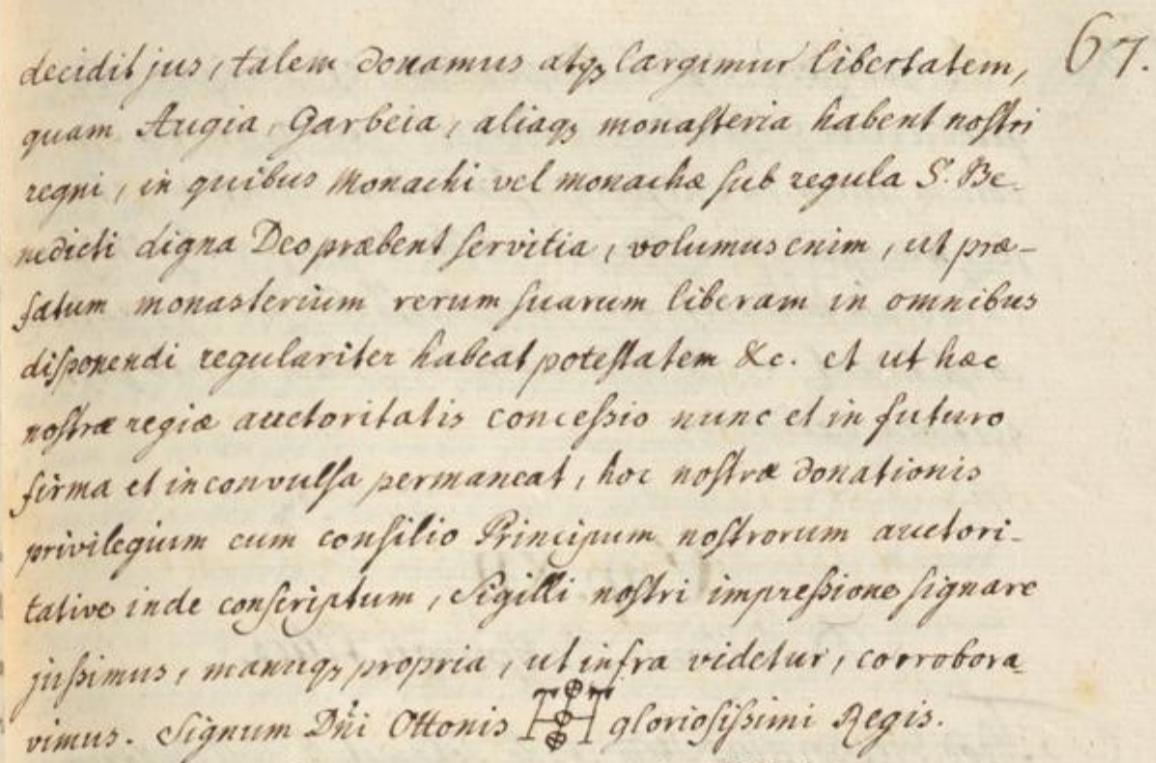 decidit jus, talem donamus atqꝫ largimur libertatem, 67.
quam Augia, Garbeia, aliaqꝫ monaſteria habent noſtri
regni, in quibus Monachi vel monachæ ſub regula S. Be-
nedicti digna Deo præbent ſervitia, volumus enim, ut præ-
fatum monasterium rerum ſuarum liberam in omnibus
diſponendi regulariter habeat poteſtatem &c. et ut hæc
noſtræ regiæ auctoritatis conceſsio nunc et in futuro
firma et inconvulſa permaneat, hoc noſtræ donationis
privilegium cum conſilio Principum noſtrorum auctori-
tative inde conſcriptum, Sigilli noſtri impreſsione ſignare
juſsimus, manuqꝫ propria, ut infra videtur, corrobora-
vimus. Signum Dn̄i Ottonis glorioſiſsimi Regis.